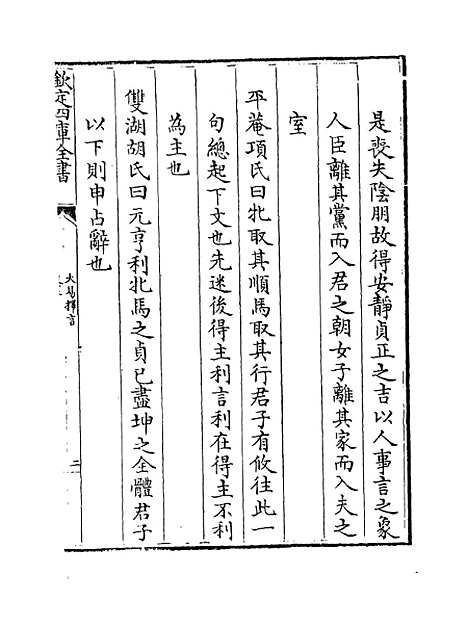 是喪失陰朋故得安靜貞正之吉以人事言之象
人臣離其黨而入君之朝女子離其家而入夫之
室
平菴項氏曰牝取其順馬取其行君子有攸往此一
句總起下文也先迷後得主利言利在得主不利
為主也
雙湖胡氏曰元亨利牝馬之貞已盡坤之全體君子
以下則申占辭也
欽定四庫全書
大易擇言
二